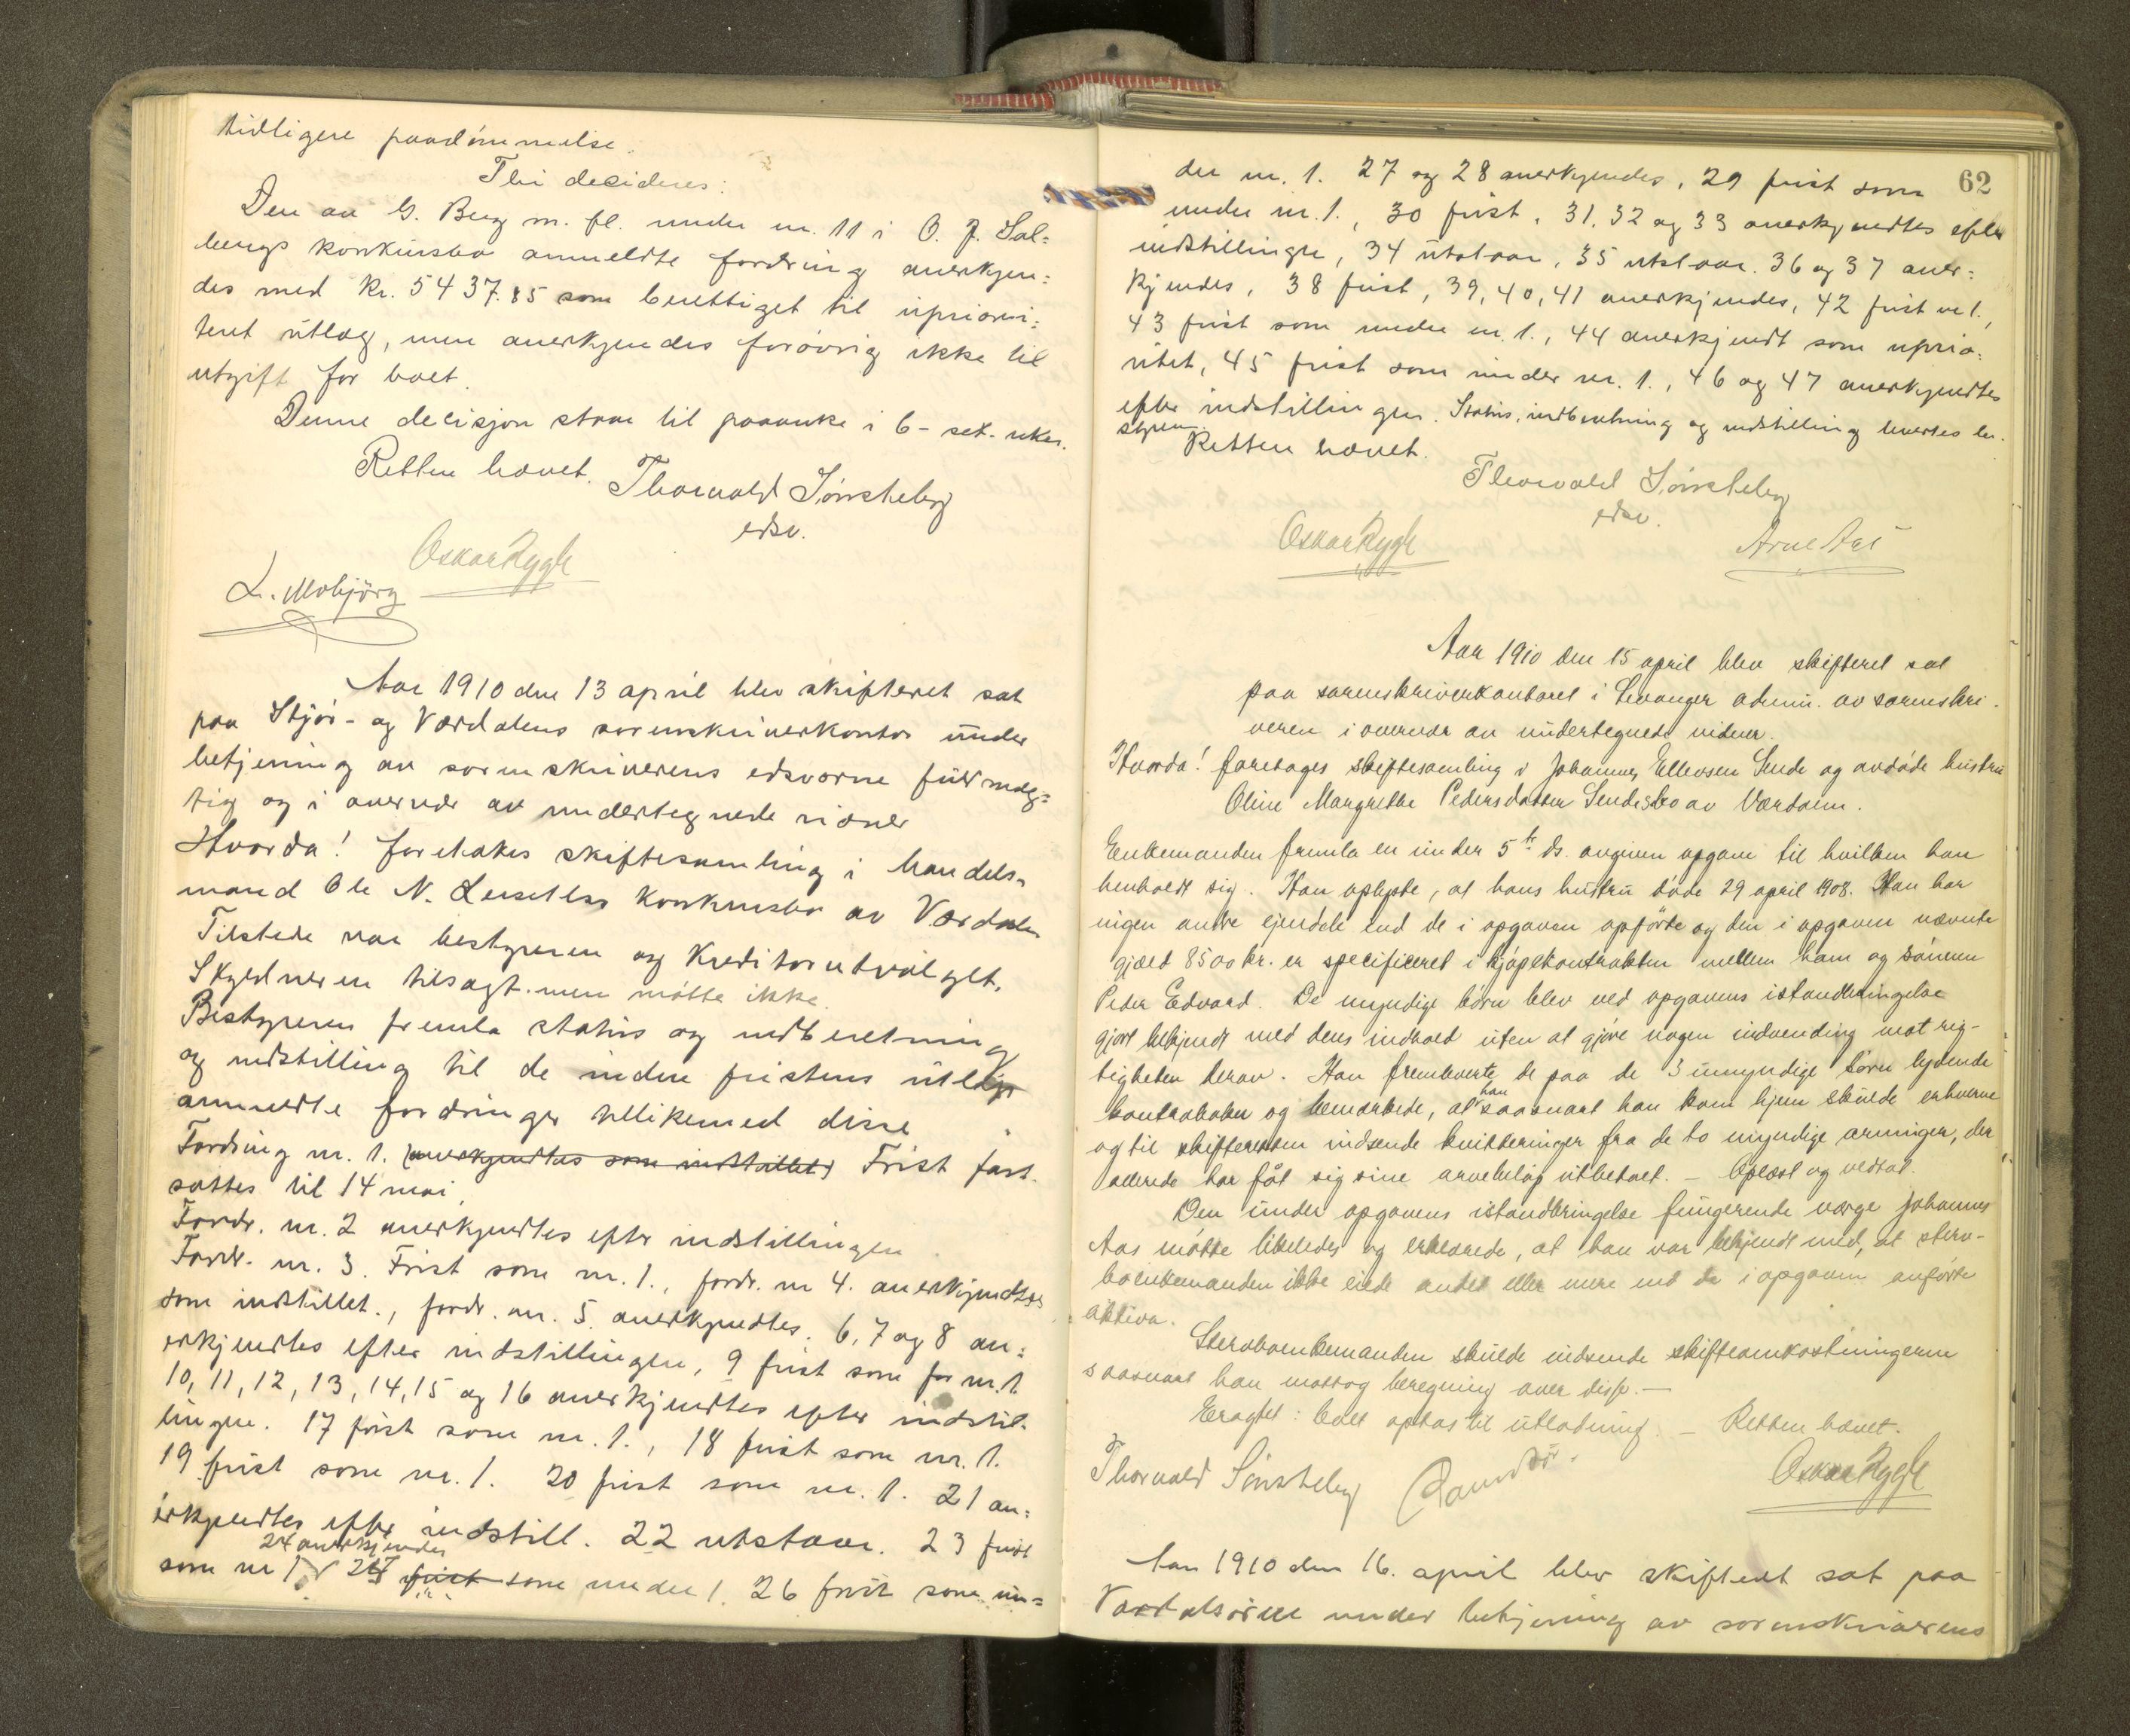 tidligere paadømmelse.
Thi decideres:
Den av G. Berg m. fl. under nr. 11 i O. J. Sol=
bergs konkursbo anmeldte fordring anerkjen=
des med kr. 5437.85 som berettiget til upriori=
teret utlæg, men anerkjendes forøvrig ikke til
utgift for boet.
Denne decisjon staar til paaanke i 6 - sex - uker.
Retten hævet. Thorvald Sønsteby
edsv.
Oskar Rygh
L. Mobjörg
Aar 1910 den 13 april blev skifteret sat
paa Stjør- og Værdalens sorenskriverkontor under
betjening av sorenskriverens edsvorne fuldmæg=
tig og i overvær av undertegnede vidner
Hvorda! foretakes skiftesamling i handels=
mand Ole N. konkursbo av Værdalen
Tilstede var bestyreren og kreditorutvalget.
Skyldneren tilsagt men møtte ikke.
Bestyreren fremla status og indberetning
og indstilling til de inden fristens utløp
anmeldte fordringer tillikemed disse
Fordring nr. 1. (anerkjendtes som indstillet) Frist fast-
sattes til 14 mai,
Fordr. nr. 2 anerkjendtes efter indstillingen
Fordr. nr. 3. Frist som nr. 1., fordr. nr 4. anerkjendtes
som indstillet., fordr. nr. 5. anerkjendtes. 6, 7 og 8 an=
erkjendtes efter indstillingen, 9 frist som for nr. 1
10, 11, 12, 13, 14, 15 og 16 anerkjendtes efter indstil-
lingen. 17 frist som nr. 1., 18 frist som nr. 1.
19 frist som nr. 1. 20 frist som nr. 1. 21 an=
erkjendtes efter indstill. 22 utstaar. 23 frist
24 anerkjendes
som nr 1 frist som under 1. 26 frist som un=
62
der nr. 1. 27 og 28 anerkjendes, 29 frist som
under nr. 1., 30 frist, 31, 32 og 33 anerkjendtes efter
indstillingen, 34 utstaar, 35 utstaar. 36 og 37 aner=
kjendes, 38 frist, 39, 40, 41 anerkjendes, 42 frist nr 1.,
43 frist som under nr. 1., 44 anerkjendt som uprio=
ritet, 45 frist som under nr. 1., 46 og 47 anerkjendtes
efter indstillingen. Status, indberetning og indstilling leveres be-
styreren.
Retten hævet.
Thorvald Sønsteby
edsv.
Oskar Rygh
Aar 1910 den 15 april blev skifteret sat
paa sorenskriverkontoret i Levanger admin. av sorenskri-
veren i overvær av undertegnede vidner.
Hvorda! foretages skiftesamling i Johannes Ellevsen Sende og avdøde hustru
Oline Margrethe Pedersdatter Sendes bo av Værdalen.
Enkemanden fremla en under 5te ds. avgiven opgave til hvilken han
henholdt sig. Han oplyste, at hans hustru døde 29 april 1908. Han har
ingen andre eiendele end de i opgaven opførte og den i opgaven nævnte
gjæld 8500 kr. er specificeret i kjøpekontrakten mellem ham og sønnen
Peder Edvard. De myndige børn blev ved opgavens istandbringelse
gjort bekjendt med dens indhold uten at gjøre nogen indvending mot rig-
tigheten derav. Han fremleverte de paa de 3 umyndige børn lydende
han
kontrabøker og bemerkede, at saasnart han kom hjem skulde erhverve
og til skifteretten indsende kvitteringer fra de to myndige arvinger, der
allerede har fåt sig sine arvebeløp utbetalt. - Oplæst og vedtat.
Den under opgavens istandbringelse fungerende værge Johannes
Aas møtte likeledes og erklærede, at han var bekjendt med, at sterv-
boenkemanden ikke eiede andet eller mere end de i opgaven anførte
aktiva.
Stervboenkemanden skulde indsende skifteomkostningerne
saasnart han mottog beregning over disse. -
Eragtet: boet optas til utlodning. - Retten hævet.
Thorvald Sønsteby
Oskar Rygh
Aar 1910 den 16. april blev skifteret sat paa
Værdalsøren under betjening av sorenskriverens